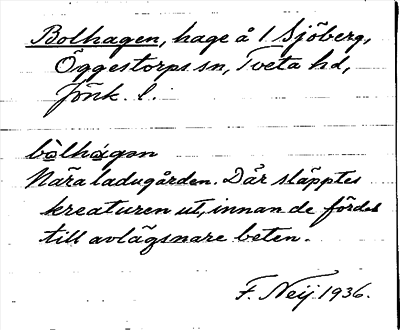 Bolhagen, hage å 1 Sjöberg,
Öggestorps sn, Tveta hd,
Jönk. l.
bo̱lhágən
Nära ladugården. Där släpptes
kreaturen ut, innan de fördes
till avlägsnare beten.
F. Neij. 1936.